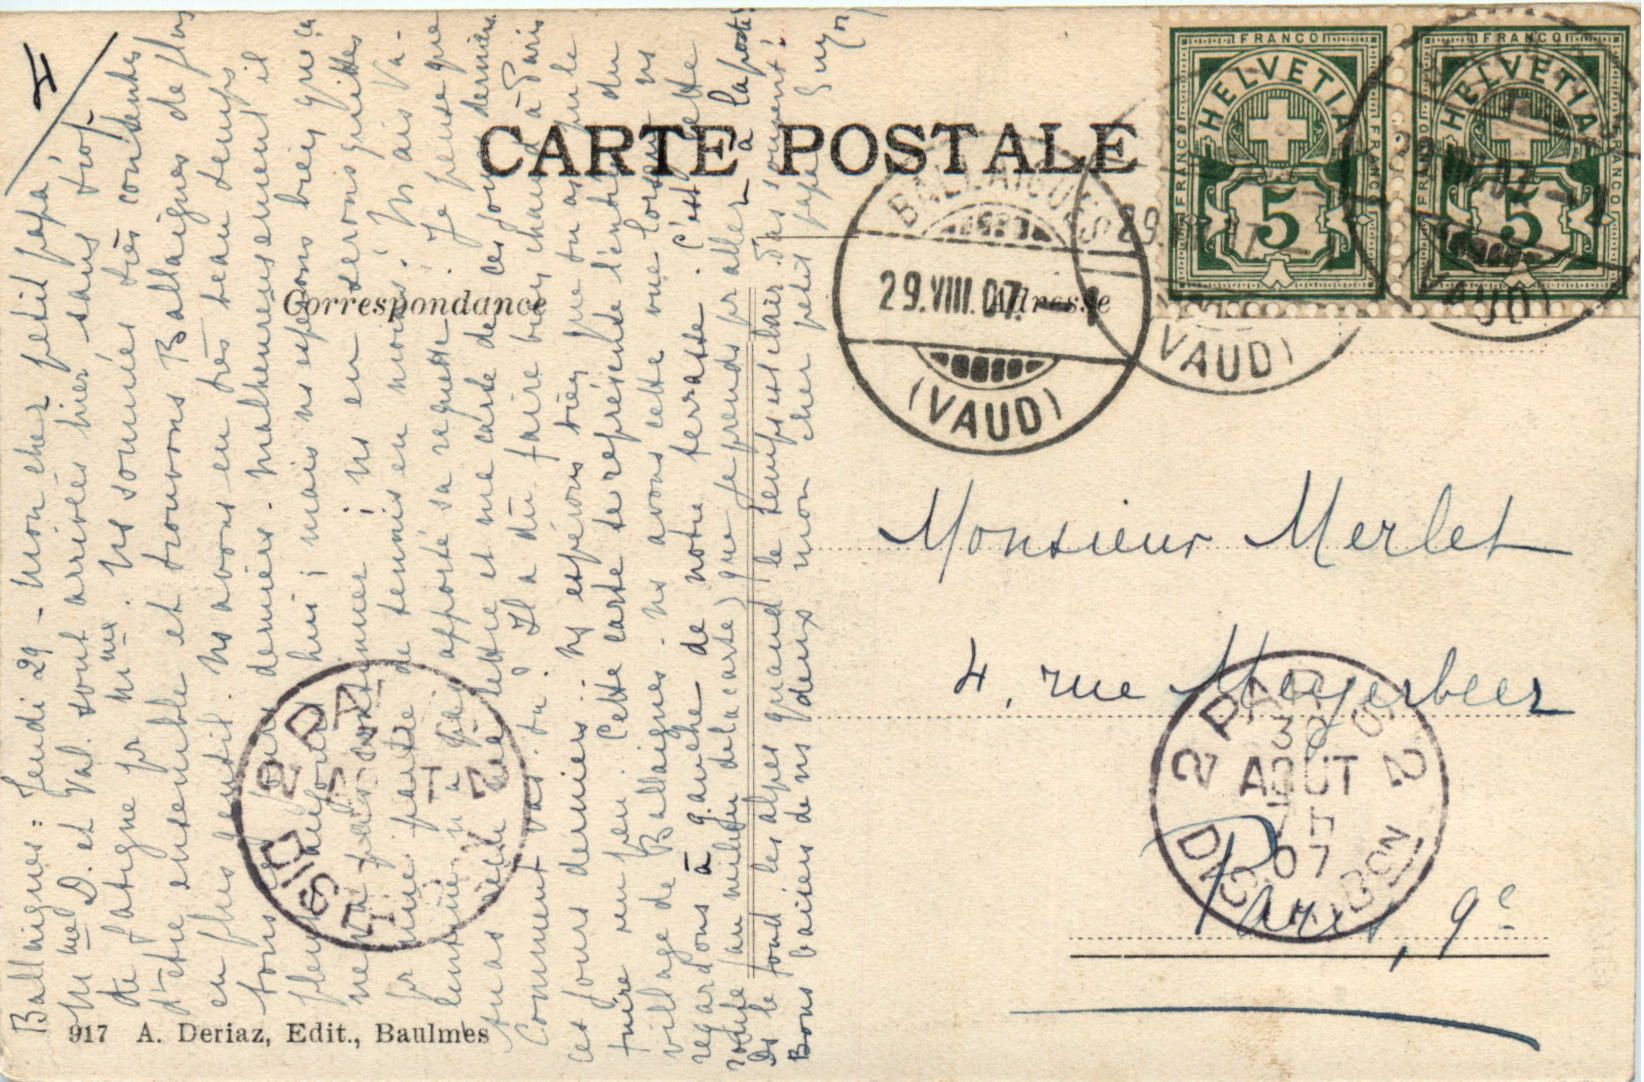 4
Ballaigues = Jeudi 29 - Mon cher petit papa,
Mme D. et Val. sont arrivés hier sans trop
de fatigue pr Mme. Ns sommes très contentes
d'être ensemble et trouvons Ballaigues de plus
en plus gentil. Ns avons eu très beau temps
tous ces jours derniers. Malheureusement il
pleut aujourd'hui ; mais ns espérons bien que ça
ne va pas continuer ; ns en serons quittes
pr une partie de tennis en moins !
apporté sa raquette. Je pense que
tu as reçu ma lettre et ma carte de ces jours derniers.
Comment vas-tu ? Il a dû faire bien chaud à Paris
ces jours derniers. Ns espérons bien que tu as pu le
fuire un peu. Cette carte te représente l'entrée du
village de Ballaigues. Ns avons cette vue lorsque ns
regardons à gauche de notre terrasse. C'est cette
route (au milieu de la carte) que je prends pr aller à la poste.
Ds le fond les alpes quand le temps est clair.
Bons baisers de ns deux mon cher petit papa Suzy
CARTE POSTALE
Correspondance
Adresse
FRANCO
HELVETIA
FRANCO
FRANCO
5
FRANCO
HELVETIA
FRANCO
FRANCO
5
BALLAIGUES
29.VIII.07.-1
(VAUD)
29.
VAUD)
VAUD)
Monsieur Merlet
4, rue Meyerbeer
Paris, 9e
2 PARIS 2
30
AOUT
07
DISTRIBUTION
2 PARIS 2
AOUT
DISTRIBUTION
917 A. Deriaz, Edit., Baulmes